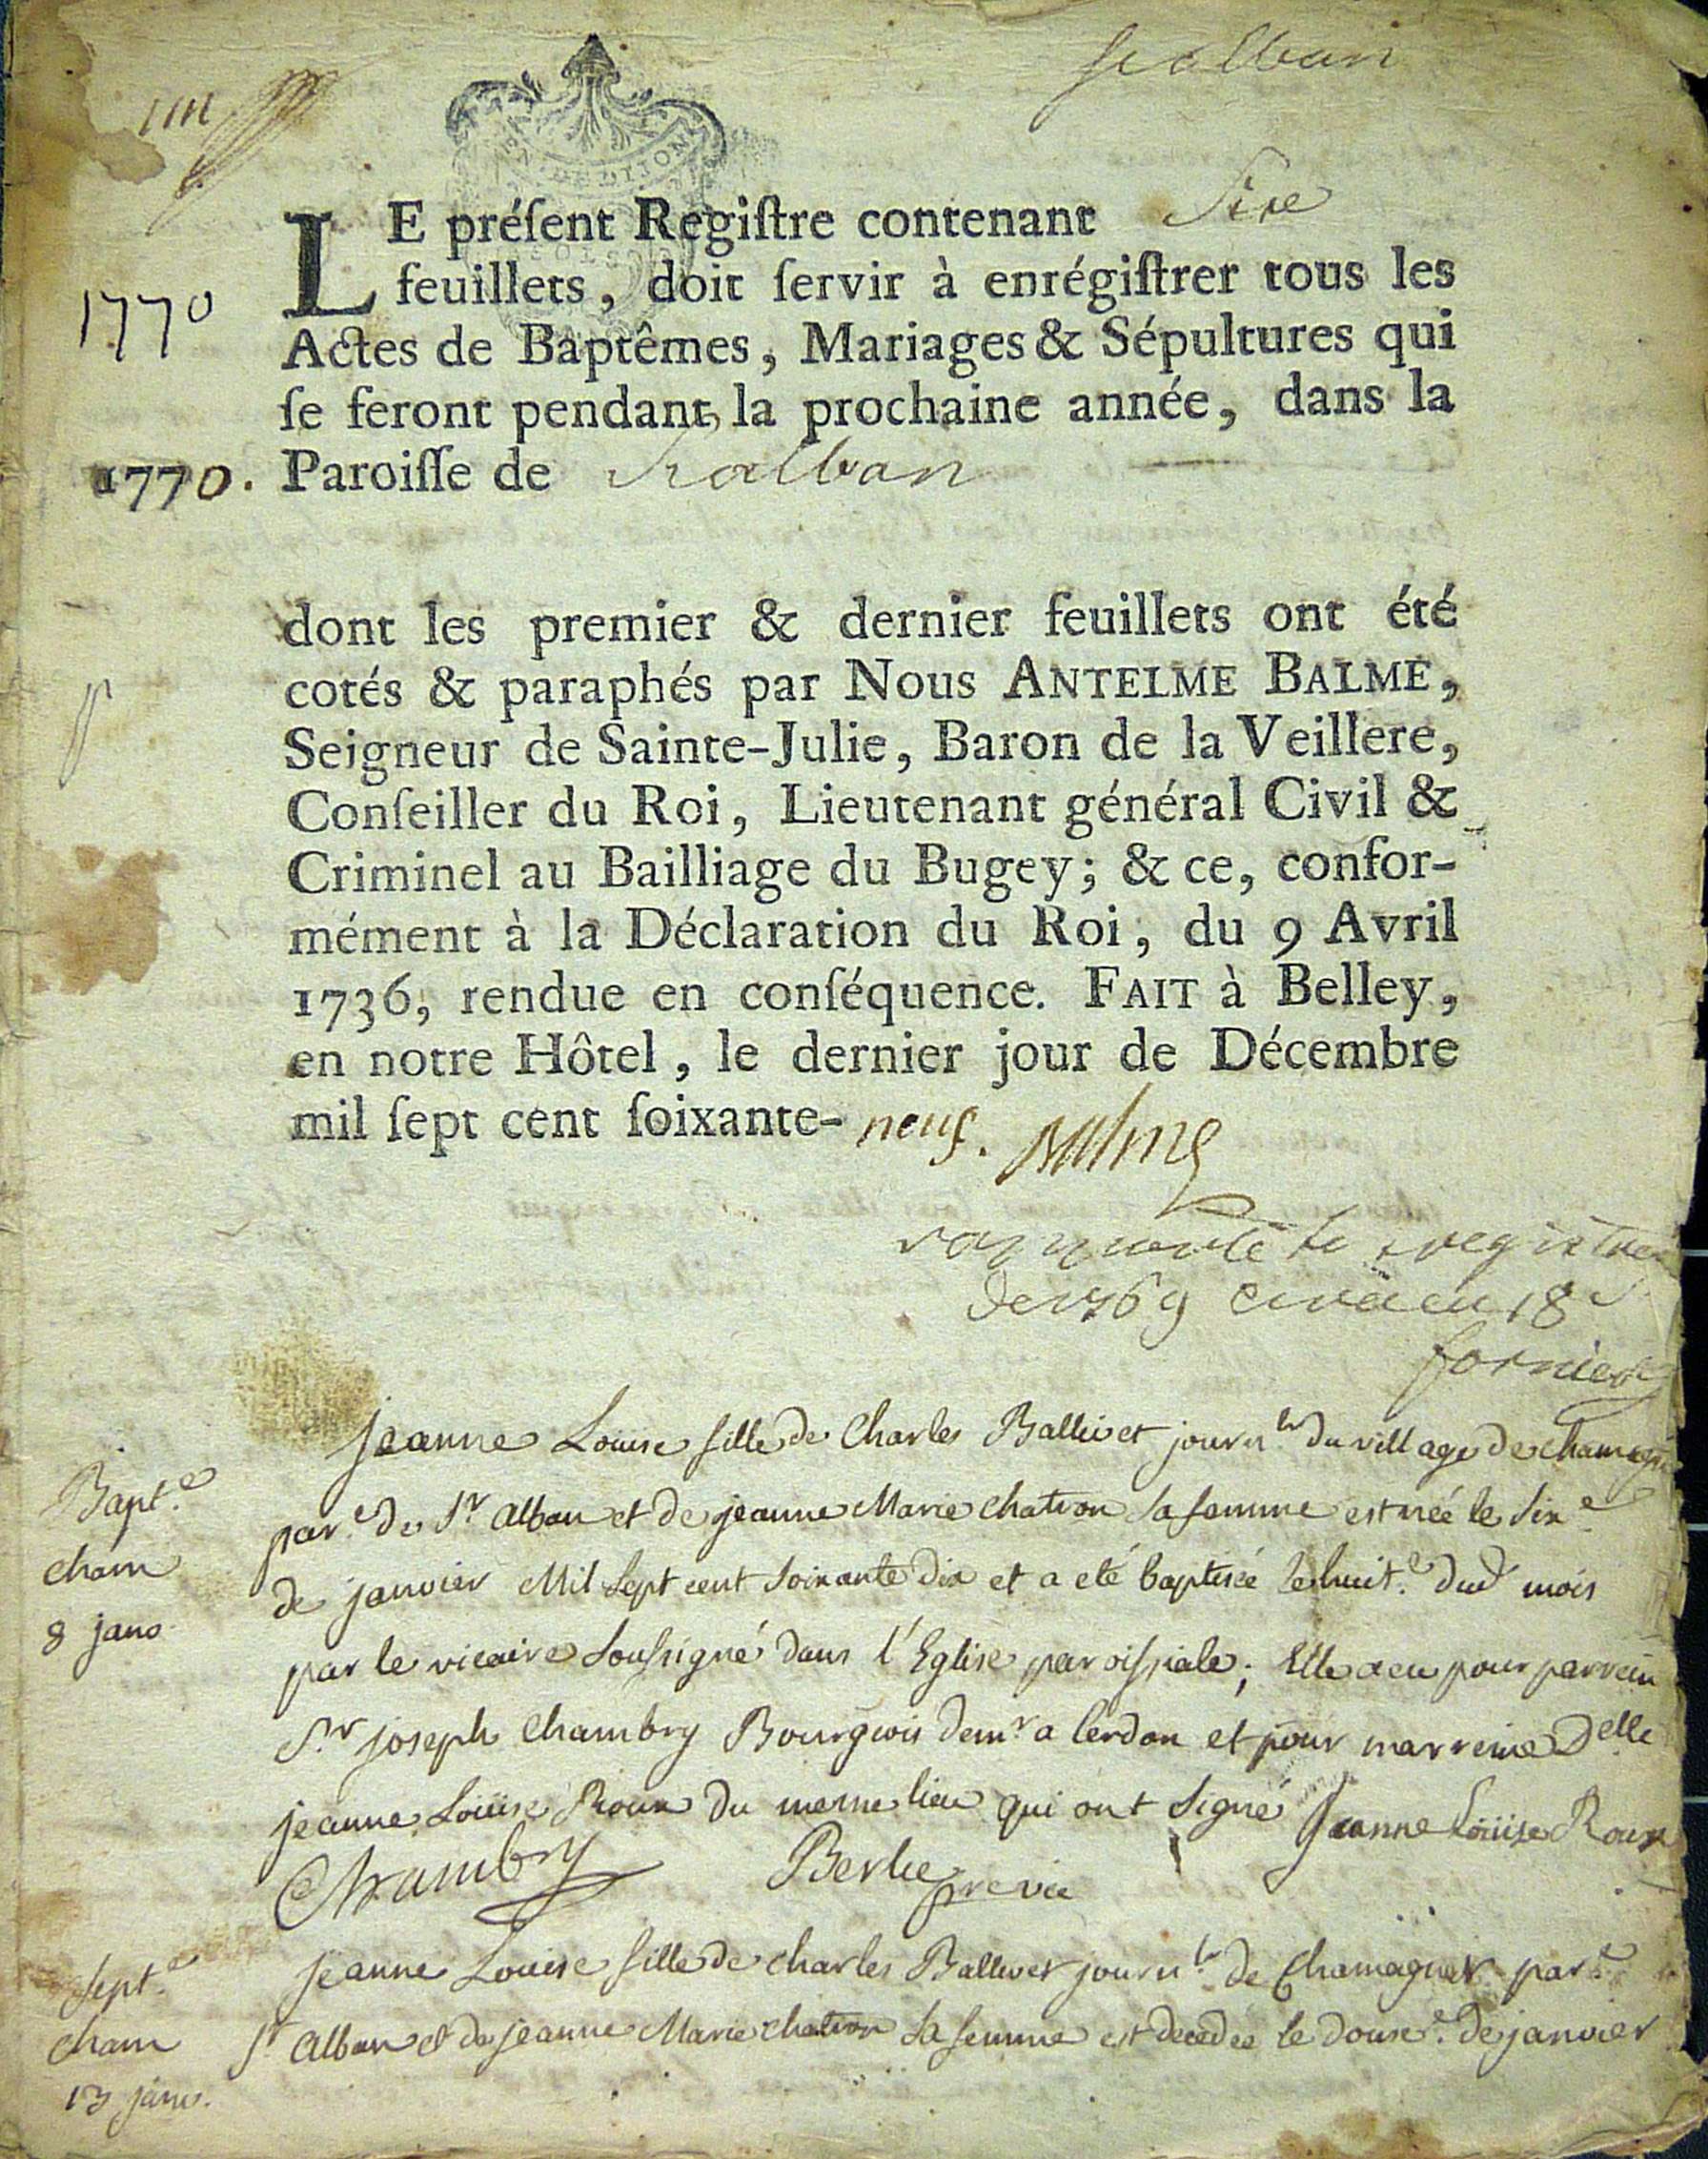 st alban
DE DIJON
LE préſent Regiſtre contenant Sixe
feuillets, doit ſervir à enrégiſtrer tous les
1770
Actes de Baptêmes, Mariages & Sépultures qui
ſe feront pendant la prochaine année, dans la
1770. Paroiſſe de St alban
dont les premier & dernier feuillets ont été
cotés & paraphés par Nous ANTELME BALME,
Seigneur de Sainte-Julie, Baron de la Veillere,
Conſeiller du Roi, Lieutenant général Civil &
Criminel au Bailliage du Bugey; & ce, confor-
mément à la Déclaration du Roi, du 9 Avril
1736, rendue en conſéquence. FAIT à Belley,
en notre Hôtel, le dernier jour de Décembre
mil ſept cent ſoixante- neuf. Balme
raporté le registre
de 1769
fornier
jeanne Louise fille de Charles Ballivet journlr du village de chamagn
Bapt.e
cham
8 janv.
par.e de St alban et de jeanne Marie chatron sa femme est née le six.e
de janvier Mil sept cent soixante dix et a eté baptisée le huit.e dud mois
par le vicaire soussigné dans l'Eglise paroissiale; Elle a eu pour parrein
Sr joseph Chambry Bourgeois demr a Cerdon et pour marreine Delle
jeanne Loüise Roux du meme lieu qui ont signé Jeanne Loüise Roux
Chambry Berlie pre vic
Sept.e
cham
13 janv.
jeanne Louise fille de charles Ballivet journlr de Chamagnet par.e
St Alban & de jeanne Marie chatron sa femme est decedée le douze.e de janvier